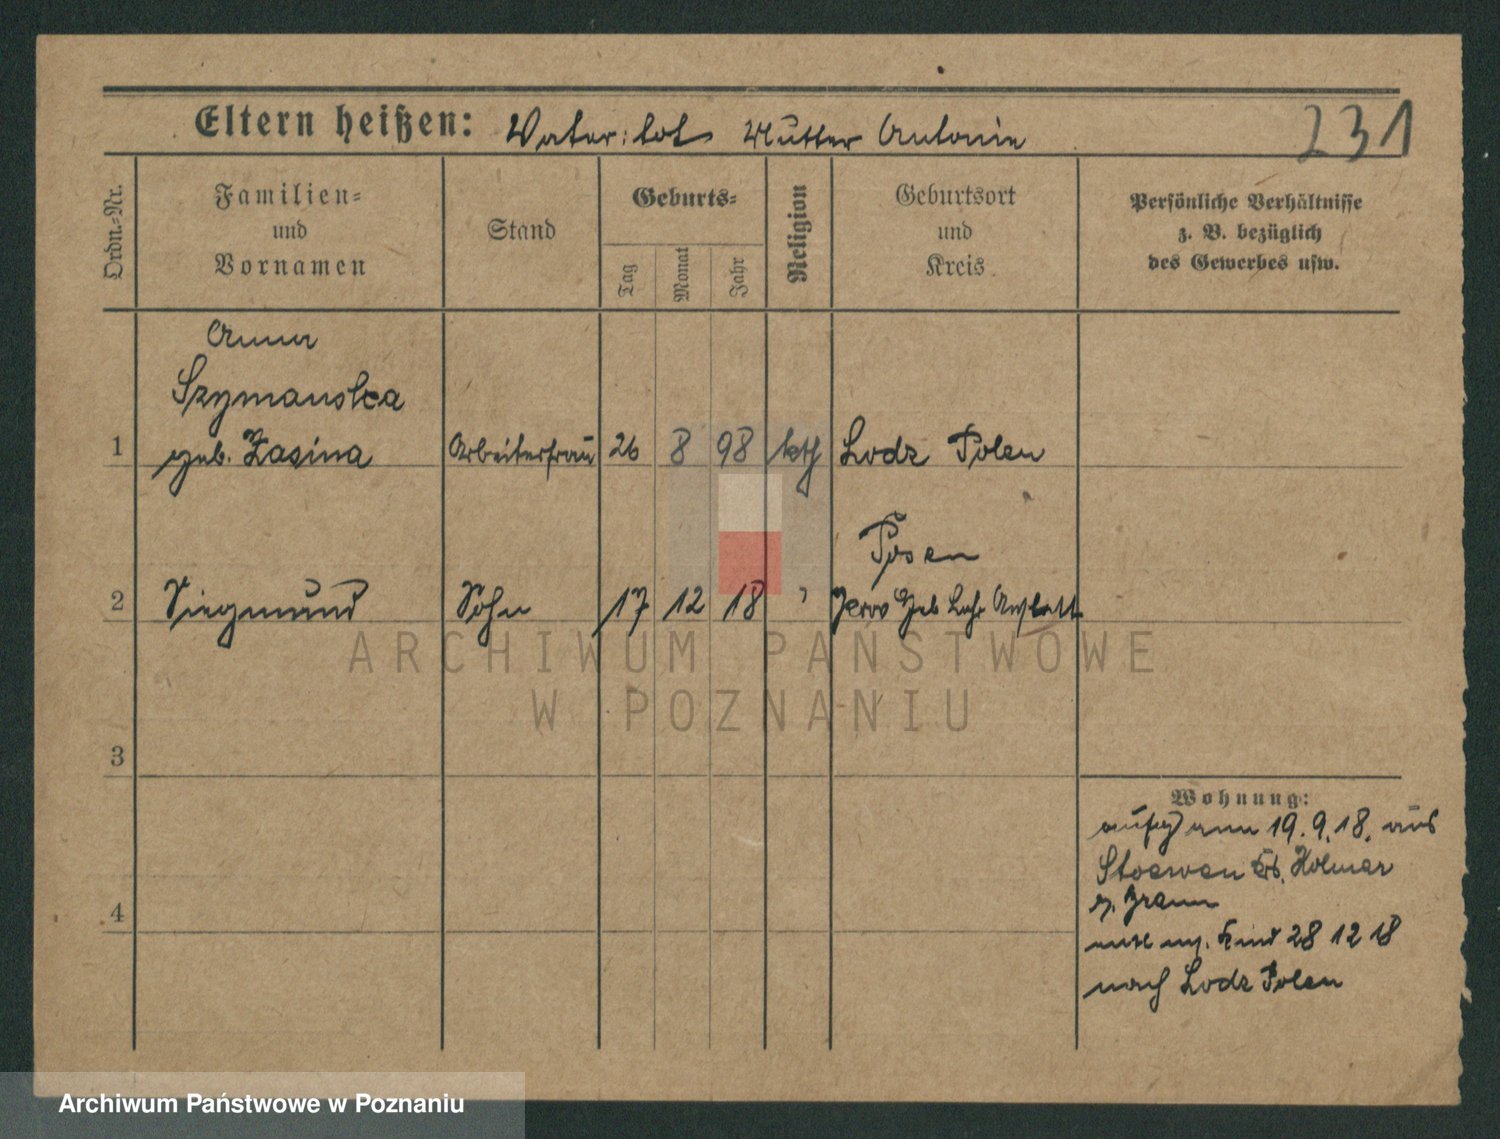 Eltern heißen: Vater: tot Mutter Antonie
231
Ordn.-Nr.
Familien-
und
Vornamen
Stand
Geburts-
Tag
Monat
Jahr
Religion
Geburtsort
und
Kreis
Persönliche Verhältnisse
z. B. bezüglich
des Gewerbes usw.
Anna
Szymanska
1 geb. Zasina Arbeiterfrau 26 8 98 kth Lodz Polen
Posen
2 Siegmund Sohn 17 12 18 " Prov Heb Lehr Anstalt
3
4
Wohnung:
am 19.9.18. aus
Stoewen Kr. Kolmar
Kind 28 12 18
nach Lodz Polen
ARCHIWUM PAŃSTWOWE
W POZNANIU
Archiwum Państwowe w Poznaniu